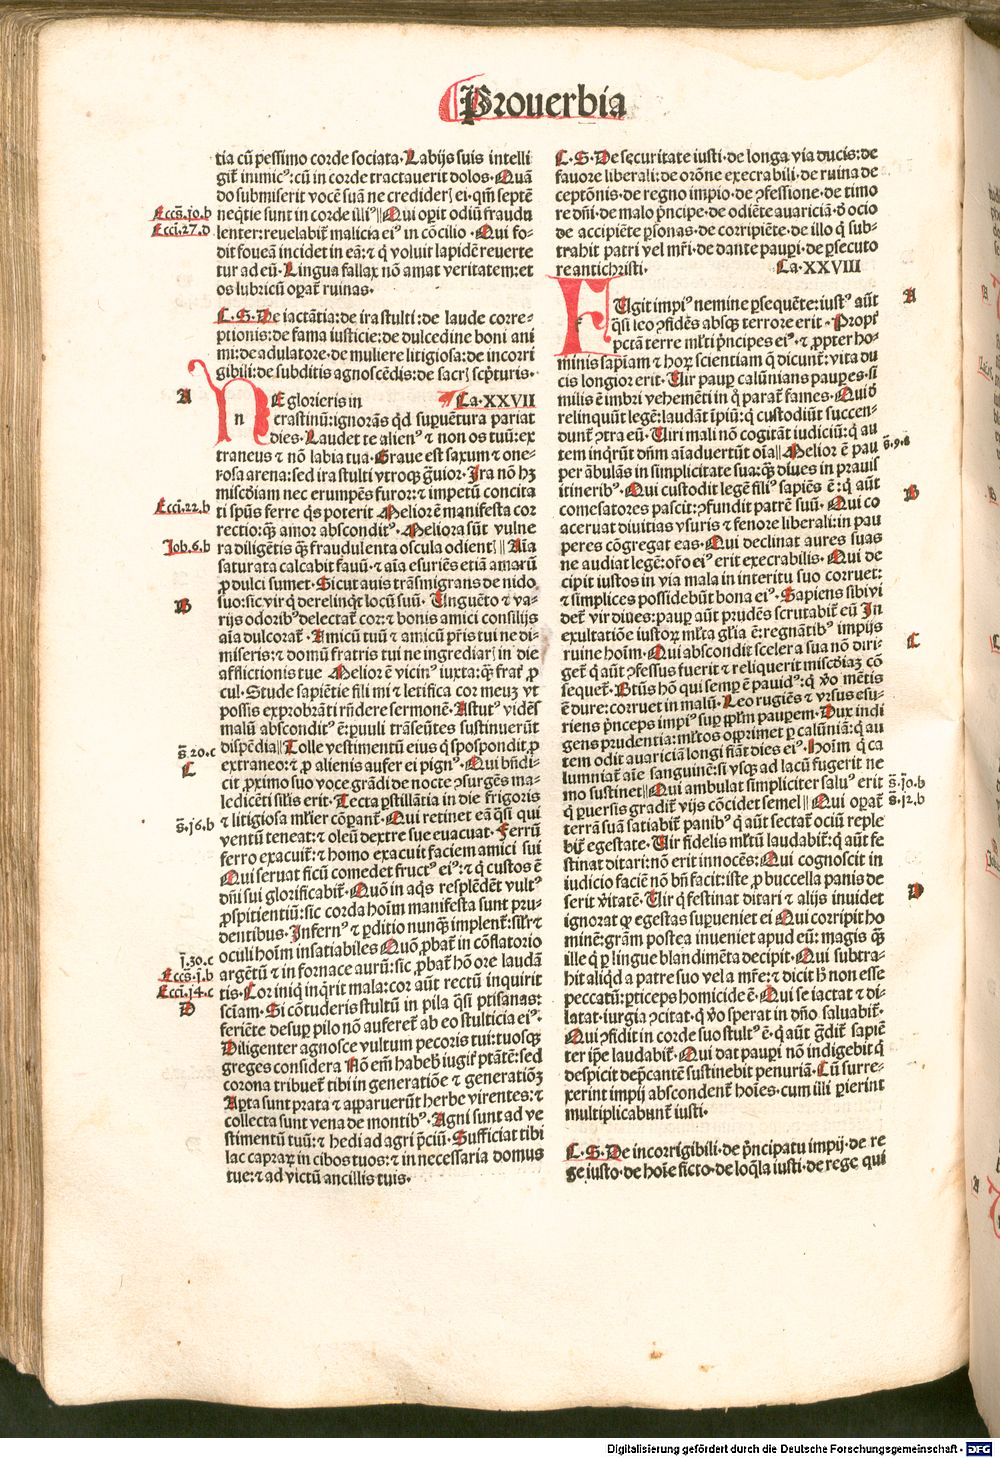 Prouerbia
tia cū pessimo corde sociata. Labijs suis intelli
git̄ inimicꝰ: cū in corde tractauerit dolos. Quā
do submiserit vocē suā ne credideris ei. qm̄ septē
neq̄tie sunt in corde illiꝰ || Qui oꝑit odiū fraudu
lenter: reuelabit̄ malicia eiꝰ in cōcilio. Qui fo-
dit foueā incidet in eā: ⁊ q̇ voluit lapidē reuerte
tur ad eū. Lingua fallax nō amat veritatem: et
os lubricū oꝑat̄ ruinas.
C. S. De iactātia: de ira stulti: de laude corre-
ptionis: de fama iusticie: de dulcedine boni ani
mi: de adulatore. de muliere litigiosa: de incorri
gibili: de subditis agnoscēdis: de sacrꝭ scp̄turis.
A
NE glorieris in Ca. XXVII
n
crastinū: ignorās qd̄ suꝑuētura pariat
dies. Laudet te alienꝰ ⁊ non os tuū: ex
traneus ⁊ nō labia tua. Graue est saxum ⁊ one-
rosa arena: sed ira stulti vtroqꝫ g̈uior. Ira nō hꝫ
mīscdiam nec erumpēs furor: ⁊ impetū concita
ti spūs ferre q̇s poterit. Melior ē manifesta cor
rectio: qꝫ̄ amor absconditꝰ. Meliora sūt vulne
ra diligētis qꝫ̄ fraudulenta oscula odientꝭ || Aīa
saturata calcabit fauū: ⁊ aīa esuriēs etiā amarū
ꝓ dulci sumet. Sicut auis trāsmigrans de nido
suo: sic vir q̇ derelinq̇t locū suū. Unguēto ⁊ va-
rijs odoribꝰ delectat̄ cor: ⁊ bonis amici consilijs
aīa dulcorat̄. Amicū tuū ⁊ amicū pr̄is tui ne di-
miseris: ⁊ domū fratris tui ne ingrediarꝭ in die
afflictionis tue. Melior ē vicinꝰ iuxta: qꝫ̄ frat̄ ꝓ
cul. Stude sapiētie fili mi ⁊ letifica cor meuꝫ vt
possis exprobrāti rn̄dere sermonē. Astutꝰ vidēs
malū absconditꝰ ē: ꝑuuli trāseūtes sustinuerūt
dispēdia || Tolle vestimentū eius q̇ spospondit ꝓ
extraneo: ⁊ ꝓ alienis aufer ei pignꝰ. Qui bn̄di-
cit ꝓximo suo voce grādi de nocte ꝯsurgēs ma-
ledicēti silis erit. Tecta ꝑstillātia in die frigoris
⁊ litigiosa ml̄ier cōꝑant̄. Qui retinet eā q̄si qui
ventū teneat: ⁊ oleū dextre sue euacuat. Ferrū
ferro exacuit̄: ⁊ homo exacuit faciem amici sui
Qui seruat ficū comedet fructꝰ eiꝰ: ⁊ q̇ custos ē
dn̄i sui glorificabit̄. Quōn aq̇s resplēdēt vultꝰ
ꝓspitientiū: sic corda hoīm manifesta sunt pru-
dentibus. Infernꝰ ⁊ ꝑditio nunqꝫ̄ implent̄: silr̄ ⁊
oculi hoīm insatiabiles Quō ꝓbat̄ in cōflatorio
argētū ⁊ in fornace aurū: sic ꝓbat̄ hō ore laudā
tis. Cor iniq̇ inq̇rit mala: cor aūt rectū inquirit
sciam. Si cōtuderis stultū in pila q̄si ptisanas:
feriēte desuꝑ pilo nō auferet̄ ab eo stulticia eiꝰ.
Diligenter agnosce vultum pecoris tui: tuosqꝫ
greges considera Nō em̄ habebꝭ iugit̄ ptātē: sed
corona tribuet̄ tibi in generatiōe ⁊ generatiōꝫ
Aꝑta sunt prata ⁊ apparuerūt herbe virentes: ⁊
collecta sunt vena de montibꝰ. Agni sunt ad ve
stimentū tuū: ⁊ hedi ad agri p̄ciū. Sufficiat tibi
lac capraꝝ in cibos tuos: ⁊ in necessaria domus
tue: ⁊ ad victū ancillis tuis.
Eccs̄. jo. b
Ecci. 27. d
Ecci. 22. b
Job. 6. b
B
s̄. 20. c
C
s̄. j6. b
j. 30. c
Eccs̄. j. b
Ecci. j4. c
D
C. S. De securitate iusti. de longa via ducis: de
fauore liberali: de orōne execrabili. de ruina de
ceptōnis. de regno impio. de ꝯfessione. de timo
re dn̄i. de malo p̄ncipe. de odiēte auariciā. d̄ ocio
de accipiēte ꝑsonas. de corripiēte. de illo q̇ sub-
trahit patri vel mr̄i. de dante pauꝑi. de ꝑsecuto
re antichristi. Ca. XXVIII
FUgit impiꝰ nemine ꝑsequēte: iustꝰ aūt
q̄si leo ꝯfidēs absqꝫ terrore erit. Propt̄
pctā terre ml̄ti p̄ncipes eiꝰ. ⁊ ꝓpter ho-
minis sapīam ⁊ hoꝝ scientiam q̄ dicunt̄: vita du
cis longior erit. Uir pauꝑ calūnians pauꝑes. si
milis ē imbri vehemēti in q̇ parat̄ fames. Qui d̄
relinquūt legē: laudāt īpiū: q̇ custodiūt succen-
dunt̄ ꝯtra eū. Uiri mali nō cogitāt iudiciū: q̇ au
tem inq̇rūt dn̄m aīaduertūt oīa || Melior ē pau
per ābulās in simplicitate sua: qꝫ̄ diues in prauis
itineribꝰ. Qui custodit legē filiꝰ sapiēs ē: q̇ aūt
comesatores pascit: ꝯfundit patrē suū. Qui co
aceruat diuitias vsuris ⁊ fenore liberali: in pau
peres cōgregat eas. Qui declinat aures suas
ne audiat legē: or̄o eiꝰ erit execrabilis. Qui de
cipit iustos in via mala in interitu suo corruet:
⁊ simplices possidebūt bona eiꝰ. Sapiens sibi vi
det̄ vir diues: pauꝑ aūt prudēs scrutabit̄ eū In
exultatiōe iustoꝝ ml̄ta gl̄ia ē: regnātibꝰ impijs
ruine hoīm. Qui abscondit scelera sua nō diri-
get̄ q̇ aūt ꝯfessus fuerit ⁊ reliquerit mīscdiaꝫ cō
sequet̄. Bt̄us hō qui semꝑ ē pauidꝰ: q̇ v̊o mētis
ē dure: corruet in malū. Leo rugiēs ⁊ vrsus esu
riens p̄nceps impiꝰ suꝑ pplm̄ pauꝑem. Dux indi
gens prudentia: ml̄tos oppͥmet ꝑ calūniā: q̇ au
tem odit auariciā longi fiāt dies eiꝰ. Hoīm q̇ ca
lumniat̄ aīe sanguinē: si vsqꝫ ad lacū fugerit ne
mo sustinet || Qui ambulat simpliciter saluꝰ erit
q̇ ꝑuersis gradit̄ vijs cōcidet semel || Qui oꝑat̄
terrā suā satiabit̄ panibꝰ q̇ aūt sectat̄ ociū reple
bit̄ egestate. Uir fidelis ml̄tū laudabit̄: q̇ aūt fe
stinat ditari: nō erit innocēs: Qui cognoscit in
iudicio faciē nō bn̄ facit: iste ꝓ buccella panis de
serit v̊itatē. Uir q̇ festinat ditari ⁊ alijs inuidet
ignorat qꝙ egestas suꝑueniet ei Qui corripit ho
minē: gr̄am postea inueniet apud eū: magis qꝫ̄
ille q̇ ꝑ lingue blandimēta decipit. Qui subtra-
hit aliq̇d a patre suo vel a mr̄e: ⁊ dicit hꝭ non esse
peccatū: ꝑticeps homicide ē. Qui se iactat ⁊ di-
latat. iurgia ꝯcitat. q̇ v̊o sperat in dn̄o saluabit̄.
Qui ꝯfidit in corde suo stultꝰ ē. q̇ aūt g̈dit̄ sapiē
ter ip̄e laudabit̄. Qui dat pauꝑi nō indigebit q̇
despicit dep̄cantē sustinebit penuriā. Cū surre-
xerint impij abscondent̄ hoīes. cum illi ꝑierint
multiplicabunt̄ iusti.
C. S. De incorrigibili. de p̄ncipatu impij. de re
ge iusto. de hoīe ficto. de loq̄la iusti. de rege qui
A
s̄. 9. 8
B
C
s̄. jo. b
s̄. j2. b
D
Digitalisierung gefördert durch die Deutsche Forschungsgemeinschaft - DFG